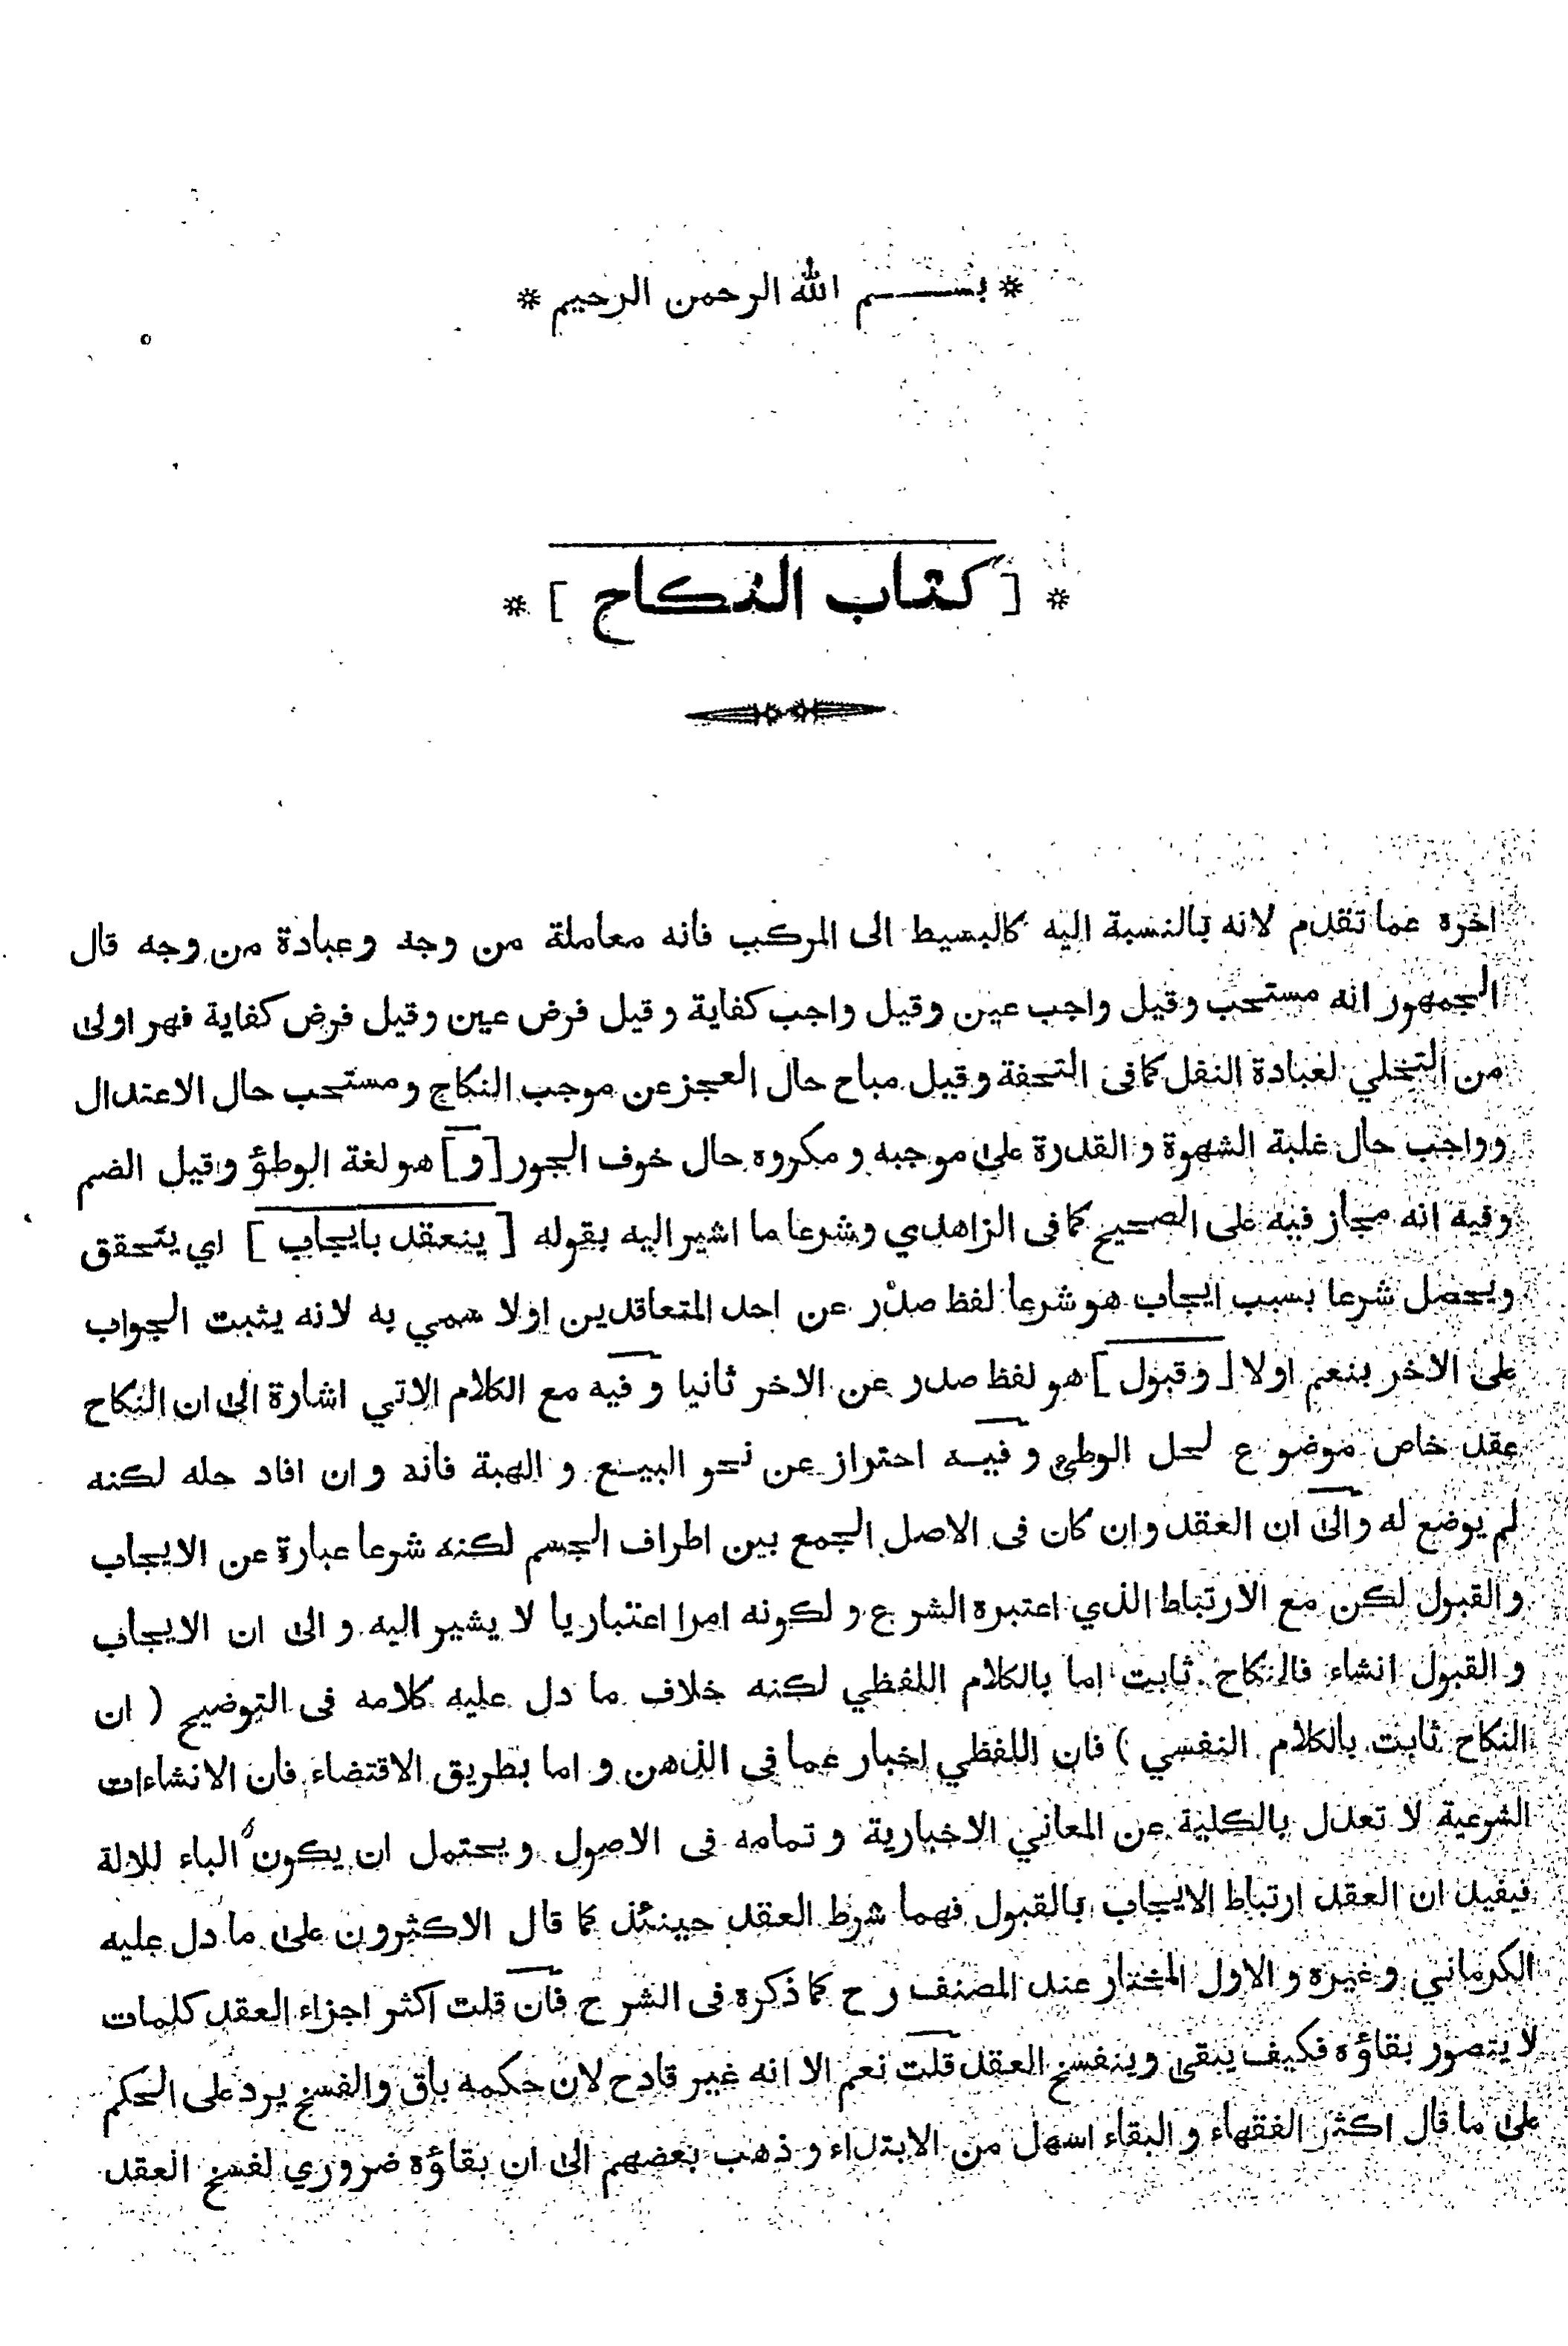 * بســـــم الله الرحمن الرحيم *
* [ كتاب النكاح ] *
اخره عما تقدم لانه بالنسبة اليه كالبسيط الى المركب فانه معاملة من وجه وعبادة من وجه قال
الجمهور انه مستحب وقيل واجب عين وقيل واجب كفاية وقيل فرض عين وقيل فرض كفاية فهر اولى
من التخلي لعبادة النفل كما فى التحفة وقيل مباح حال العجز عن موجب النكاح ومستحب حال الاعتدال
وواجب حال غلبة الشهوة والقدرة على موجبه ومكروه حال خوف الجور [و] هو لغة الوطؤ وقيل الضم
وفيه انه مجاز فيه على الصحيح كما فى الزاهدي وشرعا ما اشير اليه بقوله [ ينعقد بايجاب ] اي يتحقق
ويحصل شرعا بسبب ايجاب هو شرعا لفظ صدر عن احد المتعاقدين اولا سمي به لانه يثبت الجواب
على الاخر بنعم اولا [ وقبول ] هو لفظ صدر عن الاخر ثانيا وفيه مع الكلام الاتي اشارة الى ان النكاح
عقد خاص موضوع لحل الوطي وفيه احتراز عن نحو البيع والهبة فانه وان افاد حله لكنه
لم يوضع له والى ان العقد وان كان فى الاصل الجمع بين اطراف الجسم لكنه شرعا عبارة عن الايجاب
والقبول لكن مع الارتباط الذي اعتبره الشرع ولكونه امرا اعتباريا لا يشير اليه والى ان الايجاب
والقبول انشاء فالنكاح ثابت اما بالكلام اللفظي لكنه خلاف ما دل عليه كلامه فى التوضيح ( ان
النكاح ثابت بالكلام النفسي ) فان اللفظي اخبار عما فى الذهن واما بطريق الاقتضاء فان الانشاءات
الشرعية لا تعدل بالكلية عن المعاني الاخبارية وتمامه فى الاصول ويحتمل ان يكون الباء للالة
فيفيد ان العقد ارتباط الايجاب بالقبول فهما شرط العقد حينئذ كما قال الاكثرون على ما دل عليه
الكرماني وغيره والاول المختار عند المصنف رح كما ذكره فى الشرح فان قلت اكثر اجزاء العقد كلمات
لا يتصور بقاؤه فكيف يبقى وينفسخ العقد قلت نعم الا انه غير قادح لان حكمه باق والفسخ يرد على الحكم
على ما قال اكثر الفقهاء والبقاء اسهل من الابتداء وذهب بعضهم الى ان بقاؤه ضروري لفسخ العقد